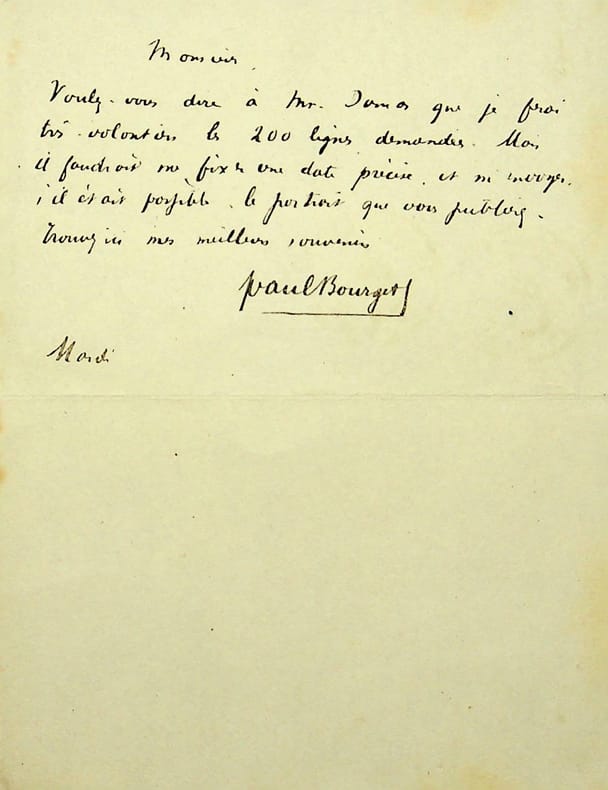 Monsieur,
Voulez-vous dire à Mr. Dumas que je ferai
très-volontiers les 200 lignes demandées. Mais
il faudrait me fixer une date précise, et m'envoyer,
s'il était possible, le portrait que vous publiez.
Trouvez ici mes meilleurs souvenirs
Paul Bourget
Mardi